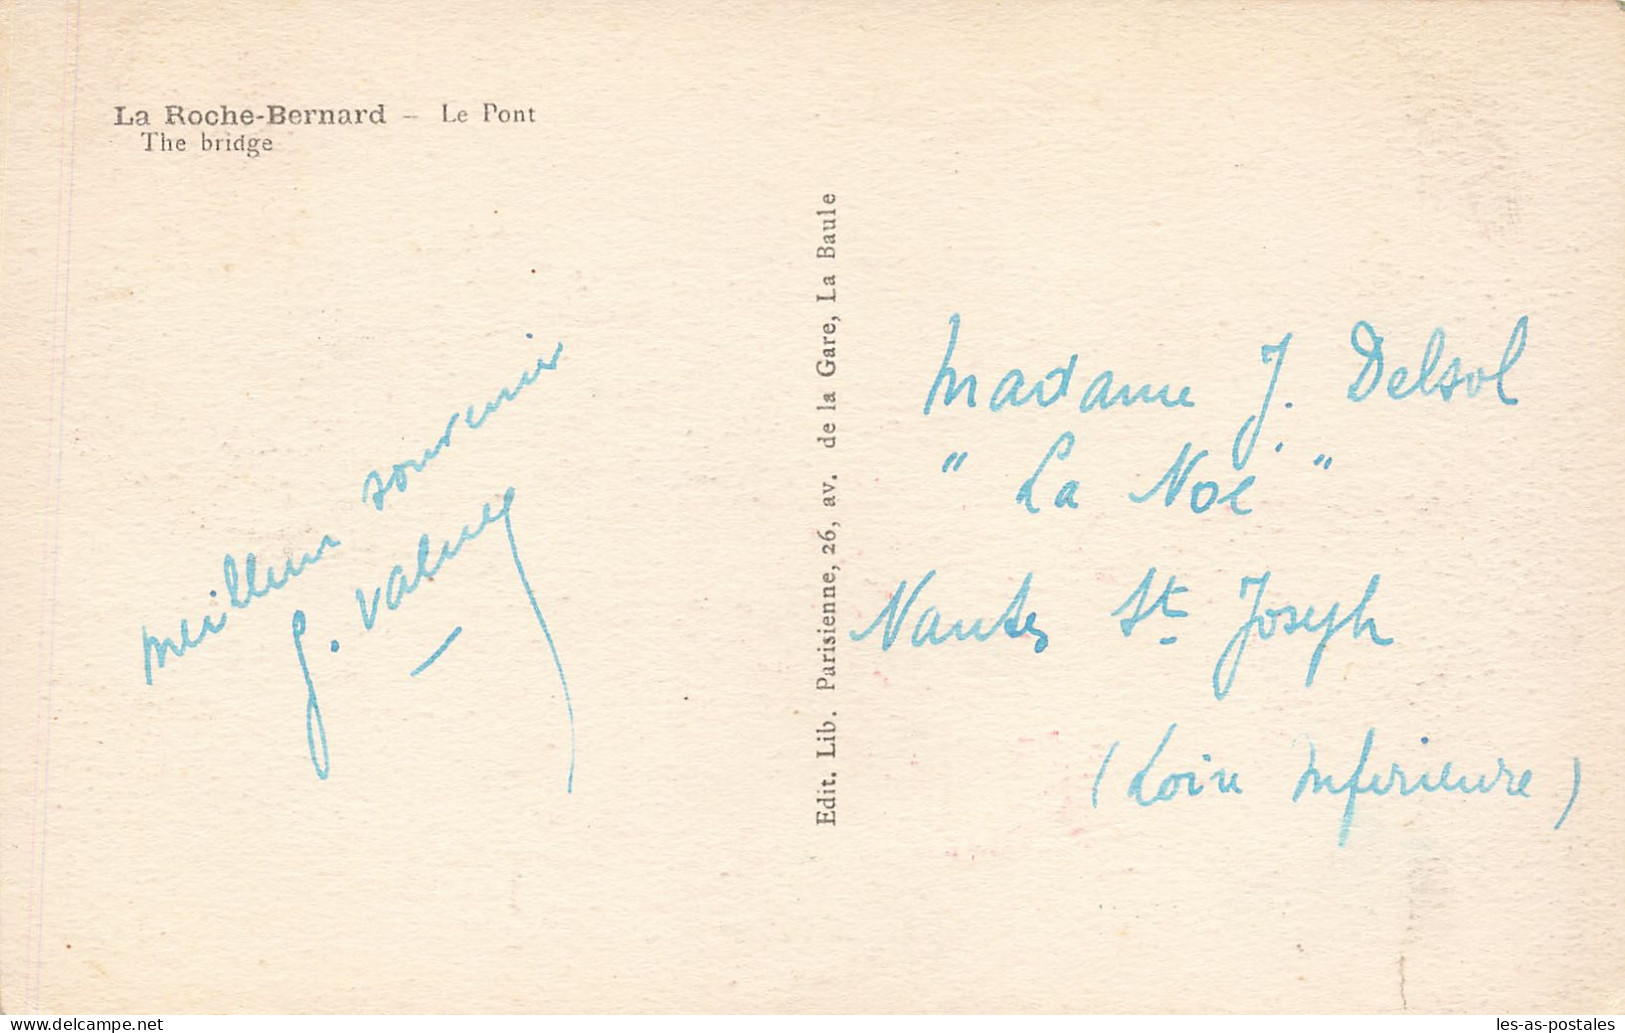 La Roche-Bernard – Le Pont
The bridge
meilleur souvenir
Edit. Lib. Parisienne, 26, av. de la Gare, La Baule
Madame J. Delsol
" La Noë "
Nantes St Joseph
(Loire Inferieure)
les-as-postales